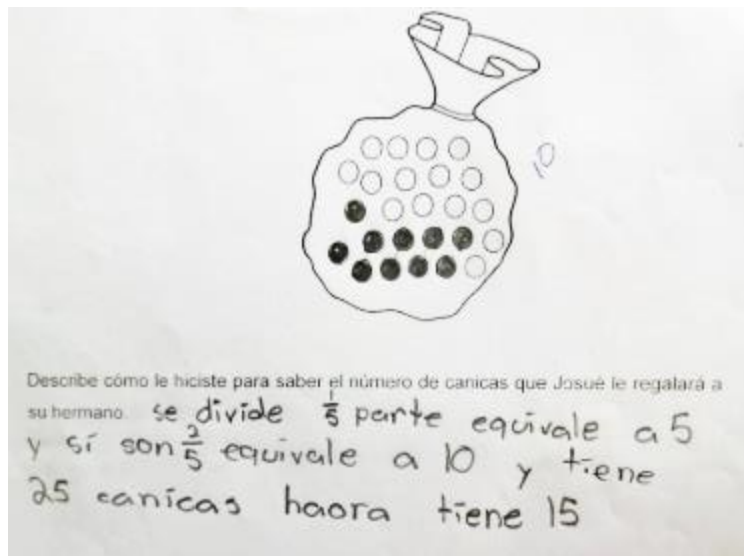 10
Describe cómo le hiciste para saber el número de canicas que Josué le regalará a
su hermano. se divide 1/5 parte equivale a 5
y sí son 2/5 equivale a 10 y tiene
25 canicas haora tiene 15